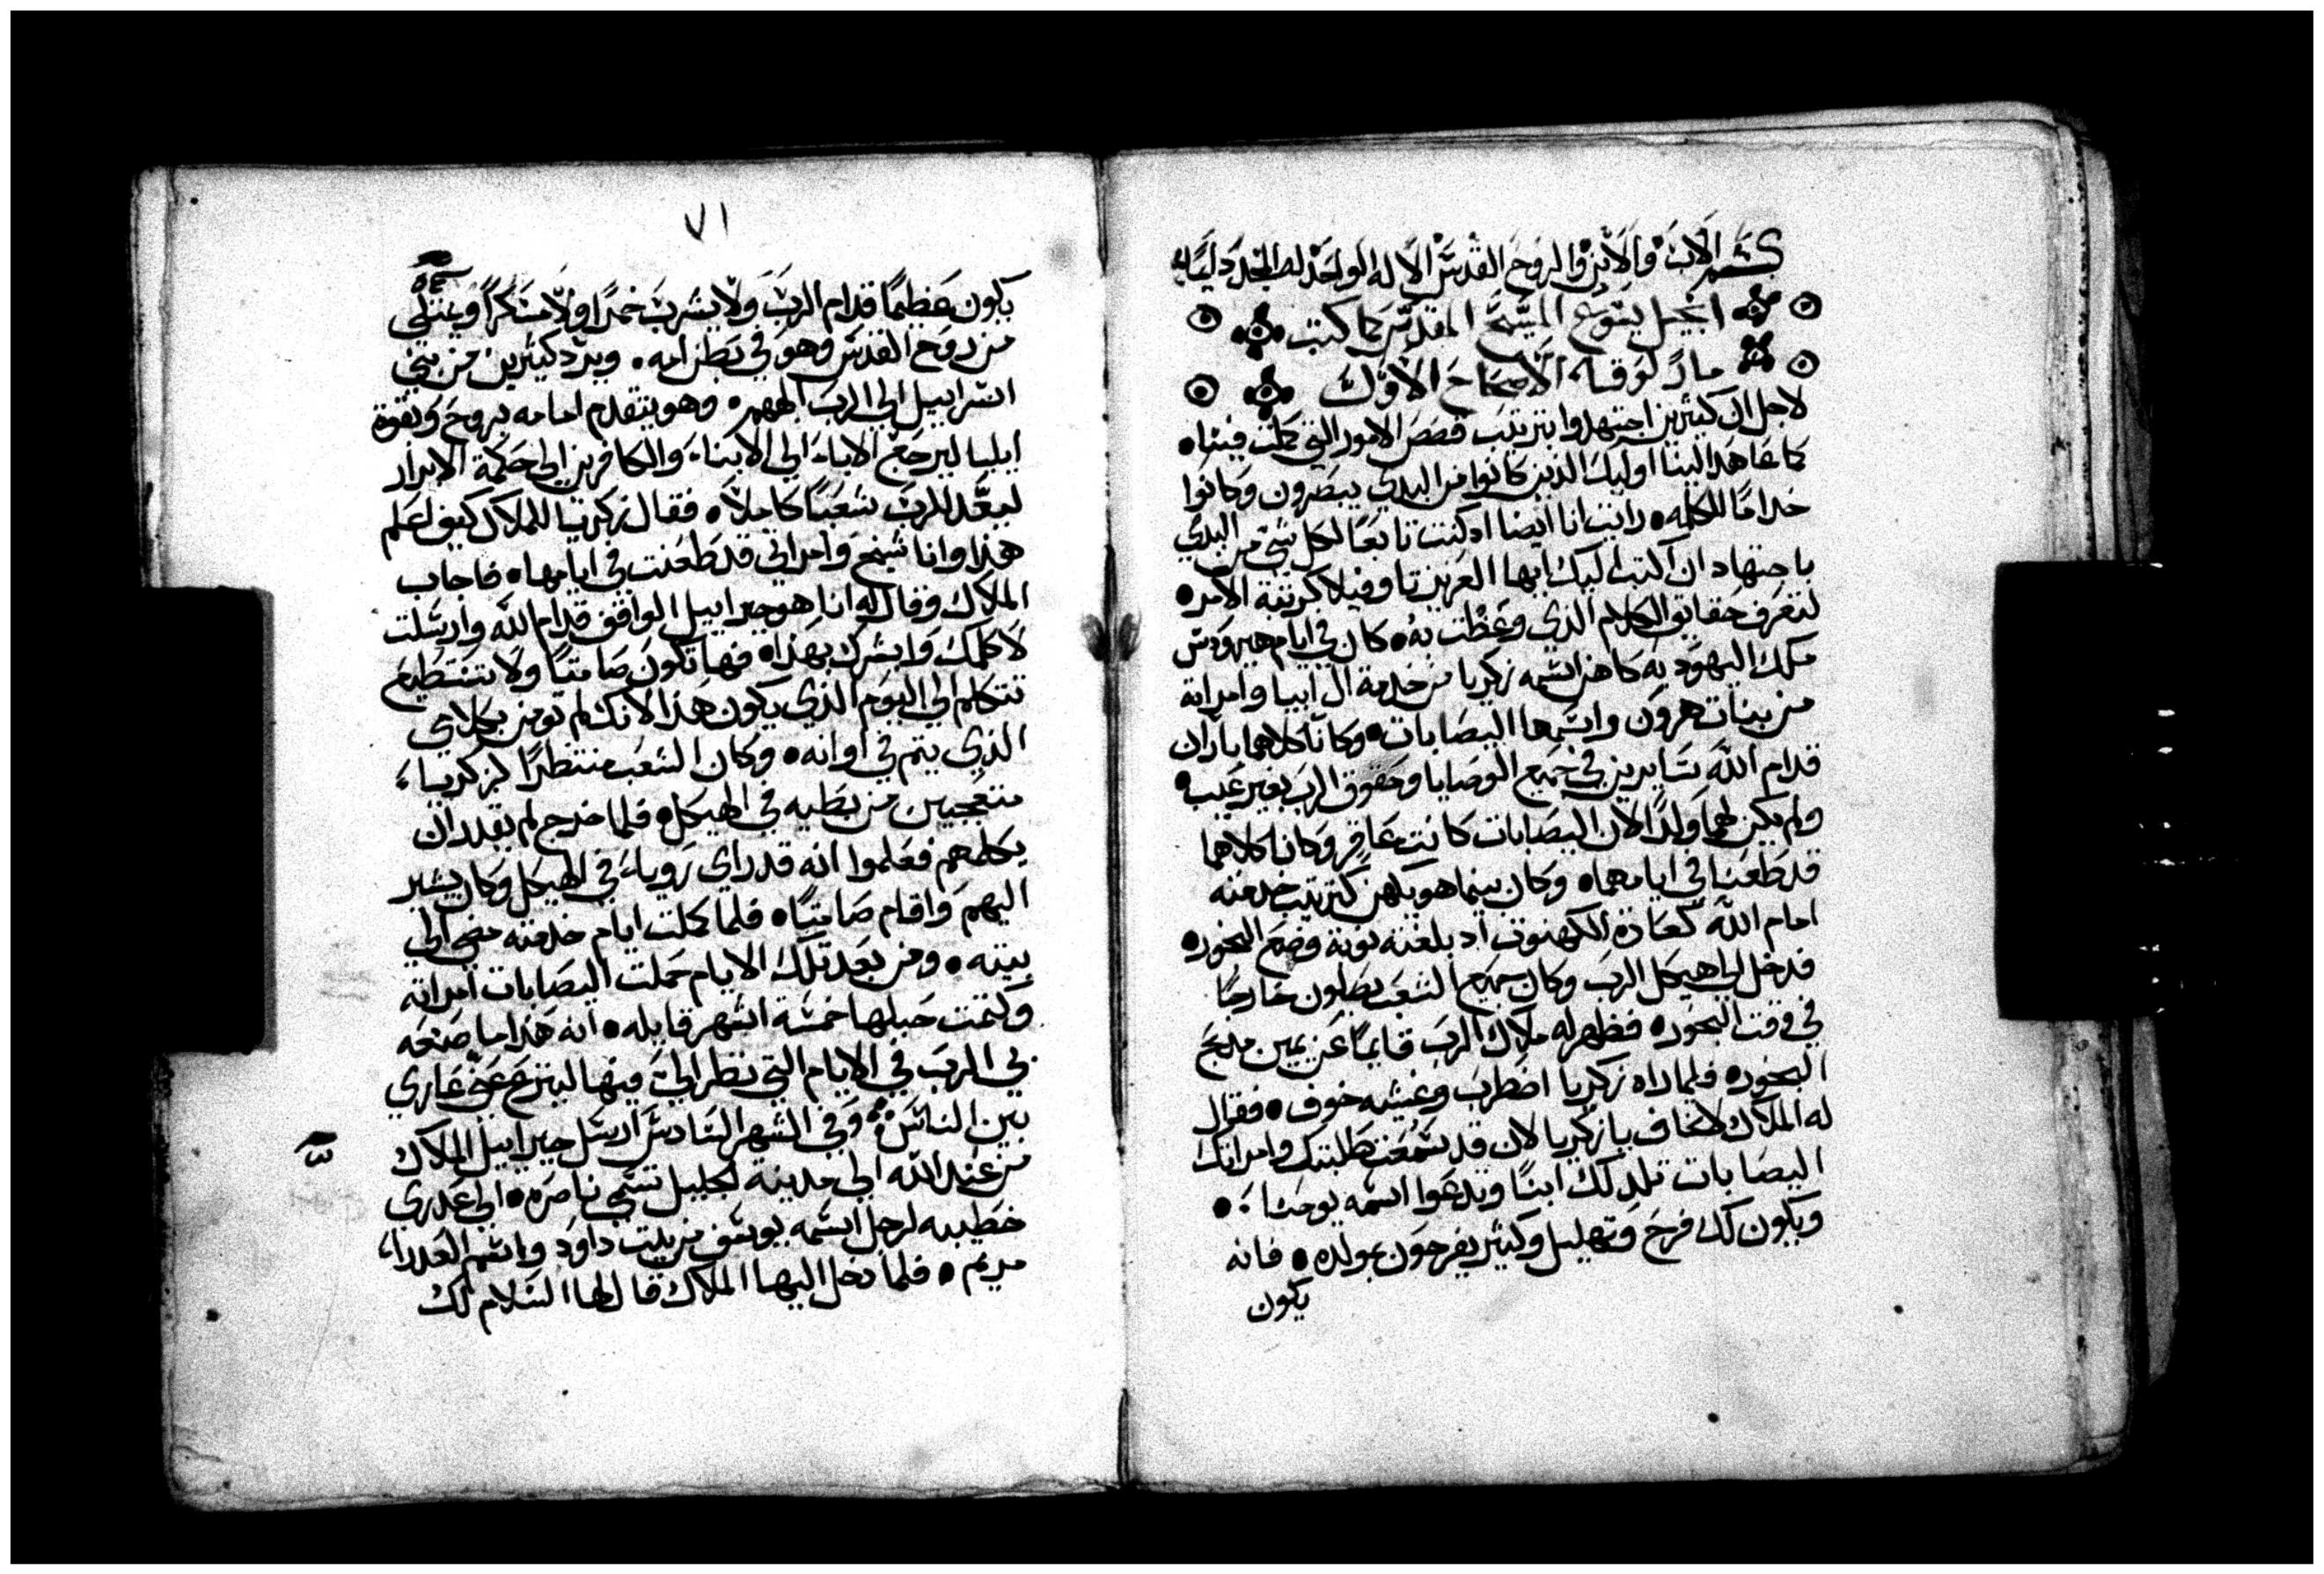 بسم الاب والابن والروح القدس الاله الواحد له المجد دايما
انجيل يسوع المسيح المقدس كما كتبت
مار لوقا الاصحاح الاول
لاجل ان كثيرين اجتهدوا بترتيب قصص الامور التي كملت فينا
كما عاهدوا الينا اوليك الذين كانوا من البدي يبصرون وكانوا
خداما للكلمه رايت انا ايضا اذ كنت تابعا لكل شي من البدي
باجتهاد ان اكتب اليك ايها العزيز تاوفيلا كرتبة الامر
لتعرف حقايق الكلام الذي وعظت به كان في ايام هيرودس
ملك اليهوديه كاهن اسمه زكريا من خدمة ال ابيا وامراته
من بنات هرون واسمها اليصابات وكانا كلاهما باران
قدام الله سايرين في جميع الوصايا وحقوق الرب بغير عيب
ولم يكن لهما ولدا لان اليصابات كانت عاقر وكانا كلاهما
قد طعنا في ايامهما وكان بينما هو يكهن كترتيب خدمته
امام الله كعادة الكهنوت اذ بلغته نوبة وضع البخور
فدخل الى هيكل الرب وكان جميع الشعب يصلون خارجا
في وقت البخور فظهر له ملاك الرب قايما عن يمين مذبح
البخور فلما راه زكريا اضطرب وغشيه خوف فقال
له الملاك لا تخاف يا زكريا لان قد سمعت طلبتك وامراتك
اليصابات تلد لك ابنا ويدعوا اسمه يوحنا
ويكون لك فرح وتهليل وكثير يفرحون بمولده فانه
يكون
٧١
يكون عظيما قدام الرب ولا يشرب خمرا ولا مسكرا ويمتلي
من روح القدس وهو في بطن امه ويرد كثيرين من بني
اسراييل الى الرب الههم وهو يتقدم امامه بروح وبقوة
ايليا ليرجع الاباء الى الابناء والكافرين الى حكمة الابرار
ليعد للرب شعبا كاملا فقال زكريا للملاك كيف اعلم
هذا وانا شيخ وامراتي قد طعنت في ايامها فاجاب
الملاك وقال له انا هو جبراييل الواقف قدام الله وارسلت
لاكلمك وابشرك بهذا فها تكون صامتا ولا تستطيع
تتكلم الى اليوم الذي يكون هذا لانك لم تومن بكلامي
الذي يتم في اوانه وكان الشعب منتظرا لزكريا
متعجبين من بطيه في الهيكل فلما خرج لم يقدر ان
يكلمهم فعلموا انه قد راى روياء في الهيكل وكان يشير
اليهم واقام صامتا فلما كملت ايام خدمته مضى الى
بيته ومن بعد تلك الايام حملت اليصابات امراته
وكتمت حبلها خمسة اشهر قايله انه هذا ما صنعه
بي الرب في الايام التي نظر الي فيها لينزع عني عاري
بين الناس وفي الشهر السادس ارسل جبراييل الملاك
من عند الله الى مدينة الجليل تسمى ناصره الى عدرى
خطيبه لرجل اسمه يوسف من بيت داود واسم العدراء
مريم فلما دخل اليها الملاك قال لها السلام لك